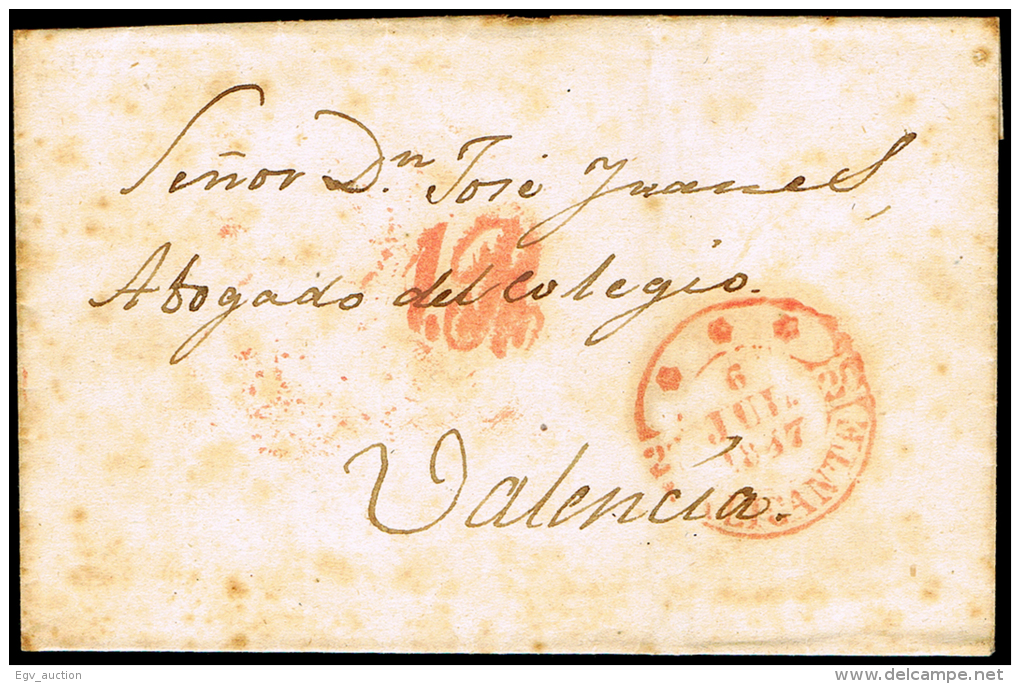 Señor Dn José Juanes,
Abogado del Colegio.
6
JUL.
1847
ALICANTE
Valencia.
Egv_auction
delcampe.net